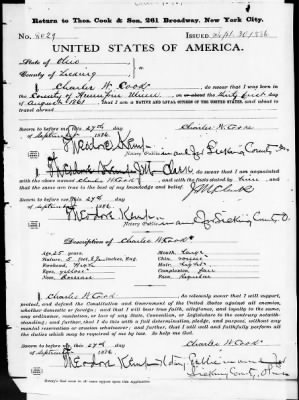 Return to Thos. Cook & Son, 261 Broadway, New York City.
No. 8029 Issued Sept. 30 1886
UNITED STATES OF AMERICA.
State of Ohio
County of Licking
I, Charles W. Cook, do swear that I was born in the
County of in on or about the thirty first day of
August 1861, that I am a NATIVE AND LOYAL CITIZEN OF THE UNITED STATES, and about to
travel abroad
Sworn to before me this 27th day
of September 1886 Charles W. Cook
Theodore Kemp
Notary Public in and for Licking County O.
I, J M Clark do swear that I am acquainted
with the above named Charles W Cook and with the facts stated by him and
that the same are true to the best of my knowledge and belief
Sworn to before me this 27th day J M Clark
of September 1886
Theodore Kemp in and for Licking County O
Notary Public
Description of Charles W Cook
Age, 25 years. Mouth, large
Stature, 5 feet, Inches, Eng. Chin,
Forehead, High Hair, light
Eyes, Complexion, fair
Nose, Roman Face,
I, Charles W Cook do solemnly swear that I will support,
protect, and defend the Constitution and Government of the United States against all enemies,
whether domestic or foreign; and that I will bear true faith, allegiance, and loyalty to the same,
any ordinance, resolution, or law of any State, Convention, or Legislature to the contrary notwith-
standing; and further, that I do this with a full determination, pledge, and purpose, without any
mental reservation or evasion whatsoever; and further, that I will well and faithfully perform all
the duties which may be required of me by law. So help me God.
Sworn to before me this 27 day Charles W Cook
of September 1886
Theodore Kemp Notary Public in and for
Licking County, Ohio